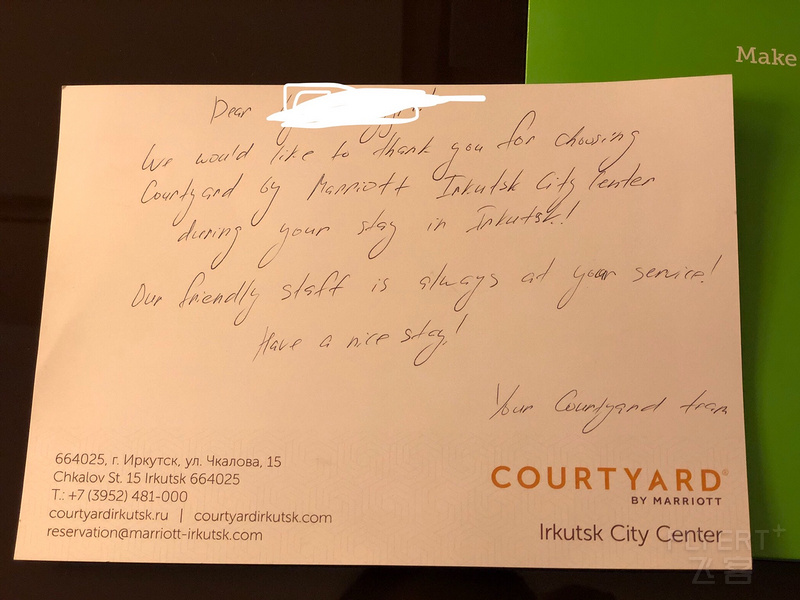 Make
Dear
We would like to thank you for choosing
Courtyard by Marriott Irkutsk City Center
during your stay in Irkutsk!
Our friendly staff is always at your service!
Have a nice stay!
Your Courtyard team
664025, г. Иркутск, ул. Чкалова, 15
Chkalov St. 15 Irkutsk 664025
T.: +7 (3952) 481-000
courtyardirkutsk.ru | courtyardirkutsk.com
reservation@marriott-irkutsk.com
COURTYARD®
BY MARRIOTT
Irkutsk City Center
FLYERT+
飞客